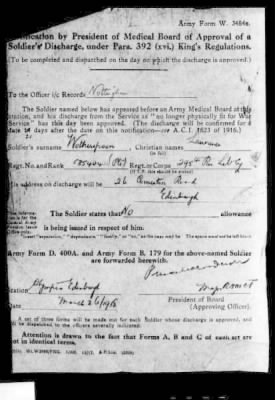 Army Form W. 3484a.
Notification by President of Medical Board of Approval of a
Soldier's Discharge, under Para. 392 (xvi.) King's Regulations.
(To be completed and dispatched on the day on which the discharge is approved.)
To the Officer i/c Records Nottingham
The Soldier named below has appeared before an Army Medical Board at this
station, and his discharge from the Service as "no longer physically fit for War
Service" has this day been approved. (The discharge will be confirmed for
days after the date on this notification—see A.C.I. 1623 of 1916).
Soldier's surname Wotherspoon Christian names Laurence
(in full)
Regt. No. and Rank (Pte) Regt. or Corps 295th
His address on discharge will be 26 Road
Edinburgh
The Soldier states that No allowance
is being issued in respect of him.
Army Form D. 400A. and Army Form B. 179 for the above-named Soldier
are forwarded herewith.
Station Edinburgh
President of Board
Date March 26/1918 (Approving Officer).
A set of three forms will be made out for each Soldier whose discharge is approved, and
will be dispatched to the officers severally indicated.
Attention is drawn to the fact that Forms A, B and C of each set are
not in identical terms.